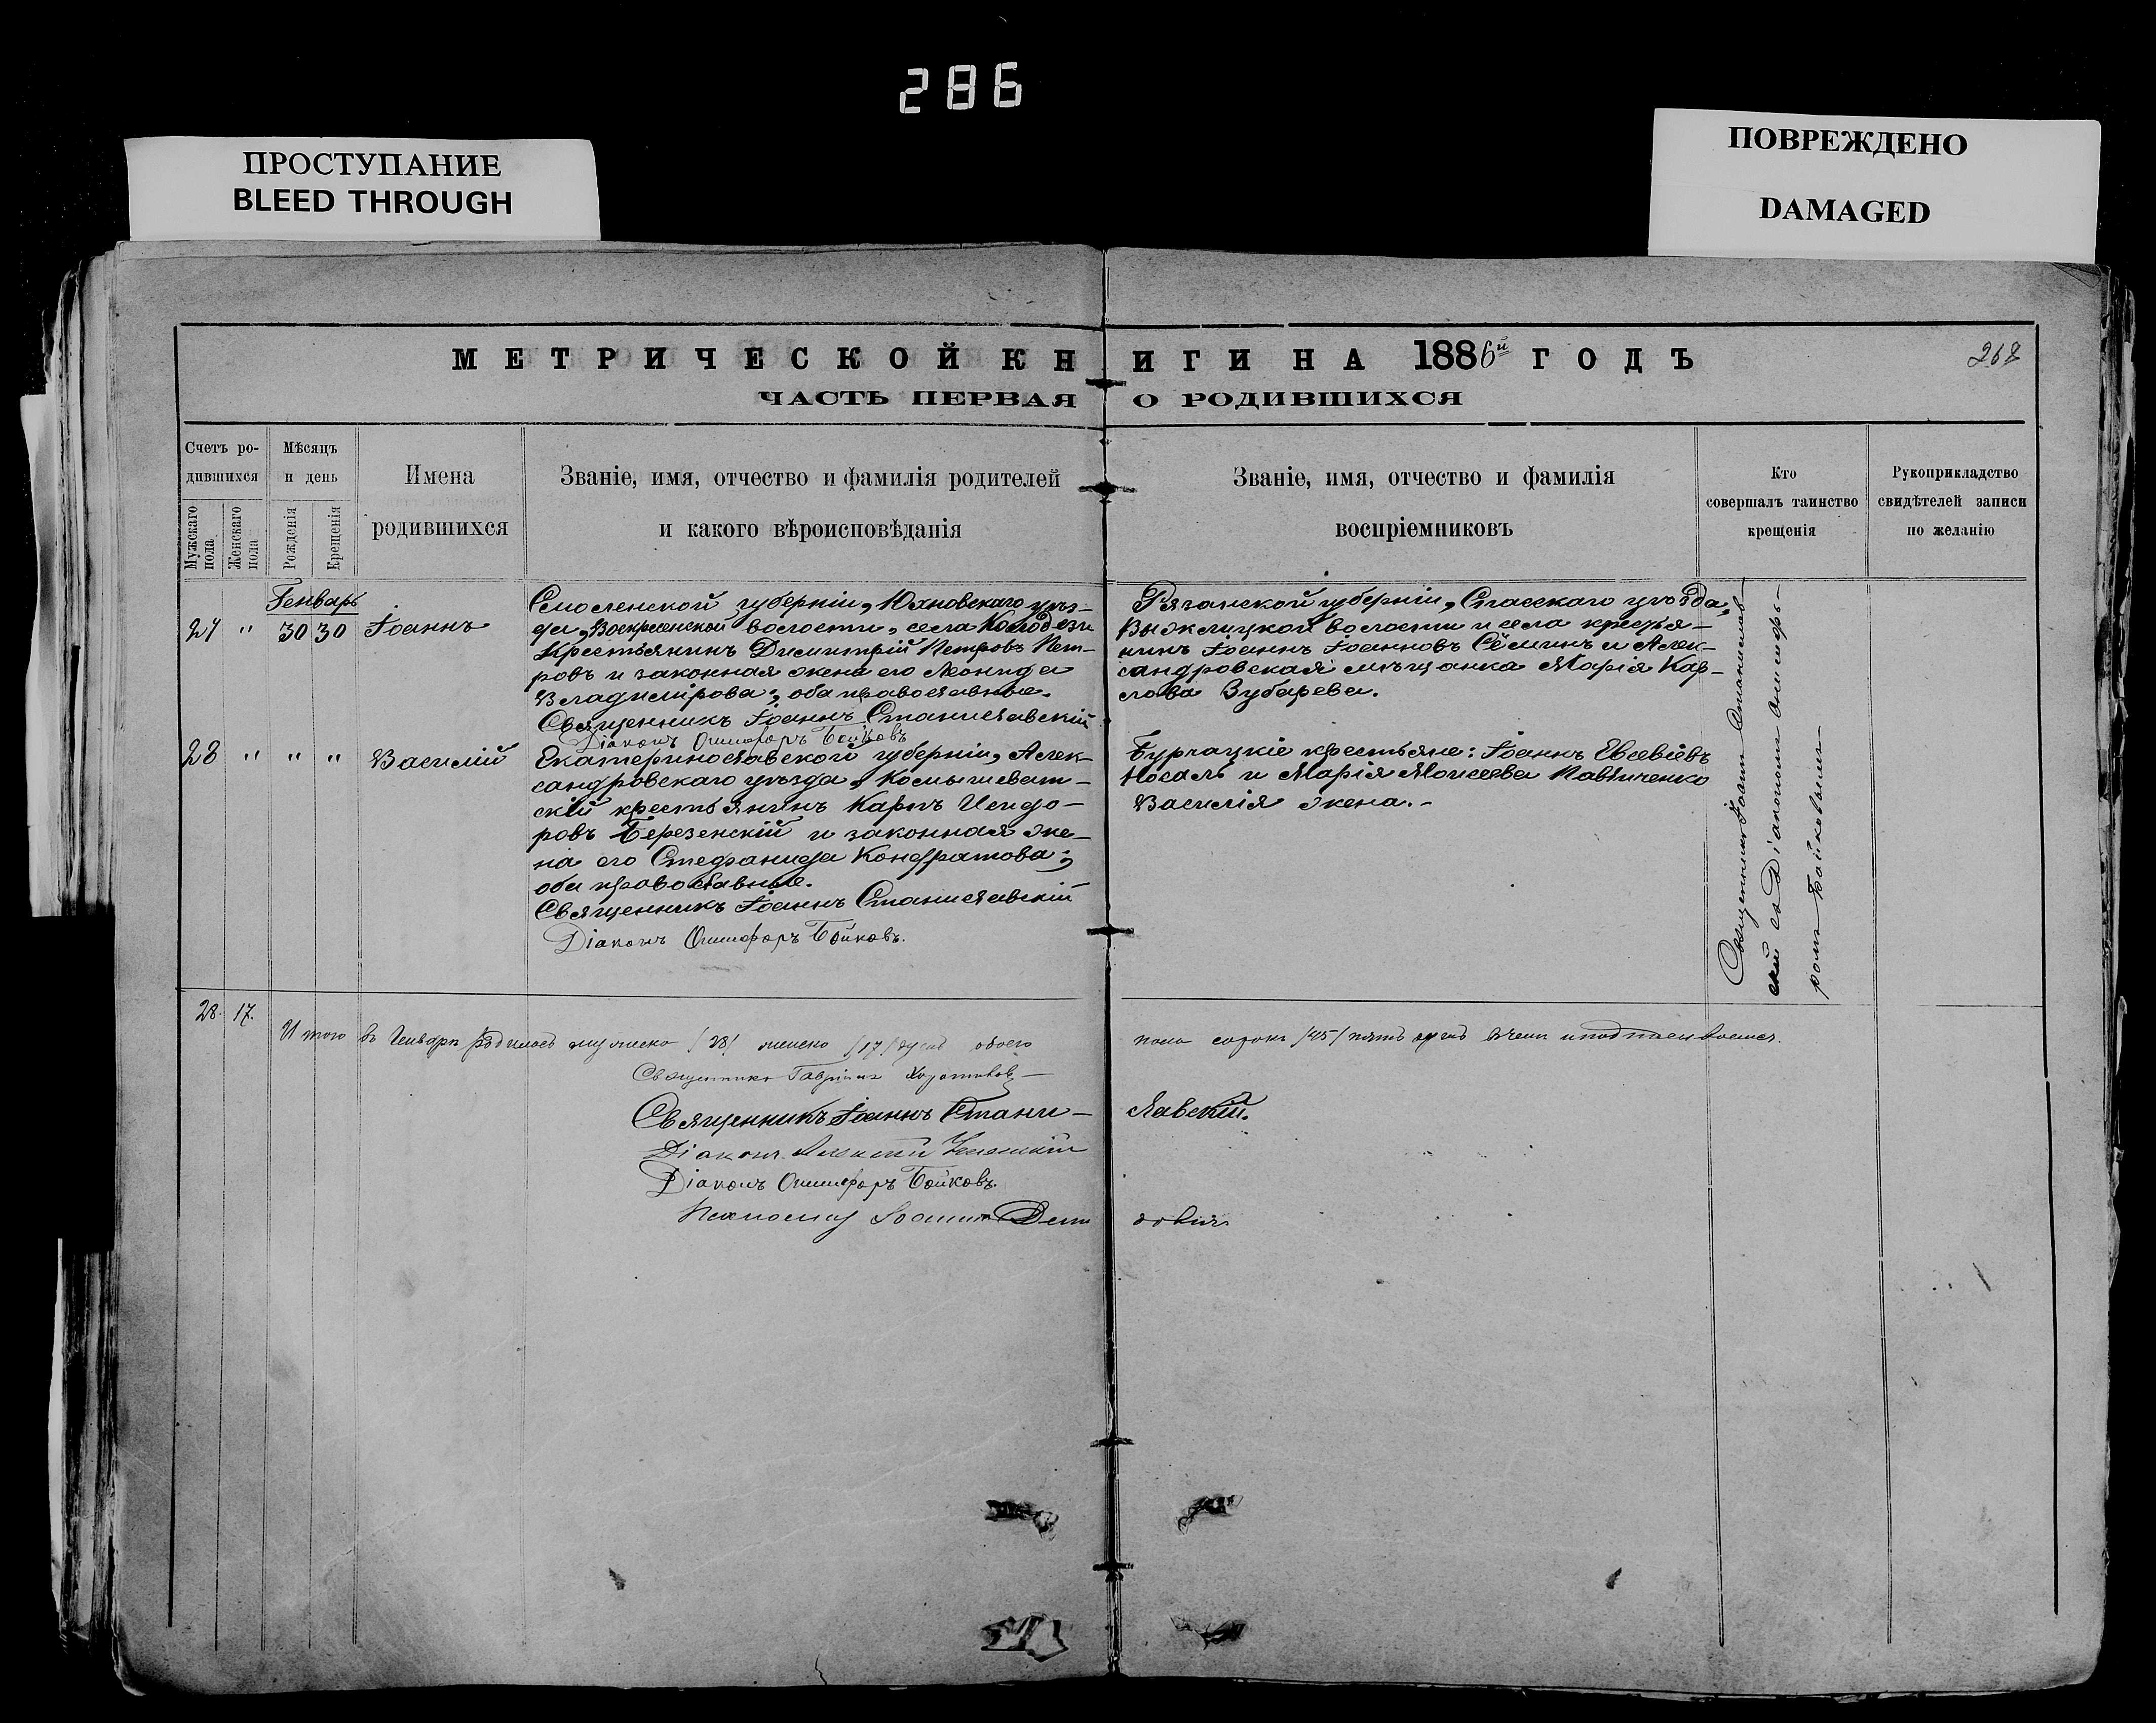 286
ПРОСТУПАНИЕ
BLEED THROUGH
ПОВРЕЖДЕНО
DAMAGED
МЕТРИЧЕСКОЙ КНИГИ НА 1886й ГОДЪ
268
ЧАСТЬ ПЕРВАЯ О РОДИВШИХСЯ
Счетъ ро-
дившихся
Мужскаго пола
Женскаго пола
Мѣсяцъ
и день
Рожденія
Крещенія
Имена
родившихся
Званіе, имя, отчество и фамилія родителей
и какого вѣроисповѣданія
Званіе, имя, отчество и фамилія
воспріемниковъ
Кто
совершалъ таинство
крещенія
Рукоприкладство
свидѣтелей записи
по желанію
Генварь
27 " 30 30 Іоаннъ
Смоленской губерніи, Юхновскаго уѣз-
да, Воскресенской волости, села Колодези
Крестьянинъ Димитрій Петровъ Пет-
ровъ и законная жена его Леонида
Владимірова; оба православные.
Священникъ Іоаннъ Станиславскій
Діаконъ Онисифоръ Бойковъ
Рязанской губерніи, Спасскаго уѣзда,
Выжелицкой волости и села крестья-
нинъ Іоаннъ Іоанновъ Сёминъ и Алек-
сандровская мѣщанка Марія Кар-
пова Зубарева.
28 " " " Василій
Екатеринославской губерніи, Алек-
сандровскаго уѣзда, Комышеват-
скій крестьянинъ Карпъ Исидо-
ровъ Березенскій и законная же-
на его Стефанида Кондратова;
оба православные.
Священникъ Іоаннъ Станиславскій
Діаконъ Онисифоръ Бойковъ.
Бурчацкіе крестьяне: Іоаннъ Евсевіевъ
Носаль и Марія Моисеева Павличенко
Василія жена.-
Священникъ Іоаннъ Станислав-
скій съ Діакономъ Онисифо-
ромъ Бойковымъ
28. 17.
Итого въ Генварѣ родилось мужеска /28/ женска /17/ душъ обоего пола сорокъ /45/ пять душъ въ чемъ и подписываемся.
Священникъ Гавріилъ
Священникъ Іоаннъ Станиславскій.
Діаконъ Алексій
Діаконъ Онисифоръ Бойковъ.
Псаломщ Іоаннъ